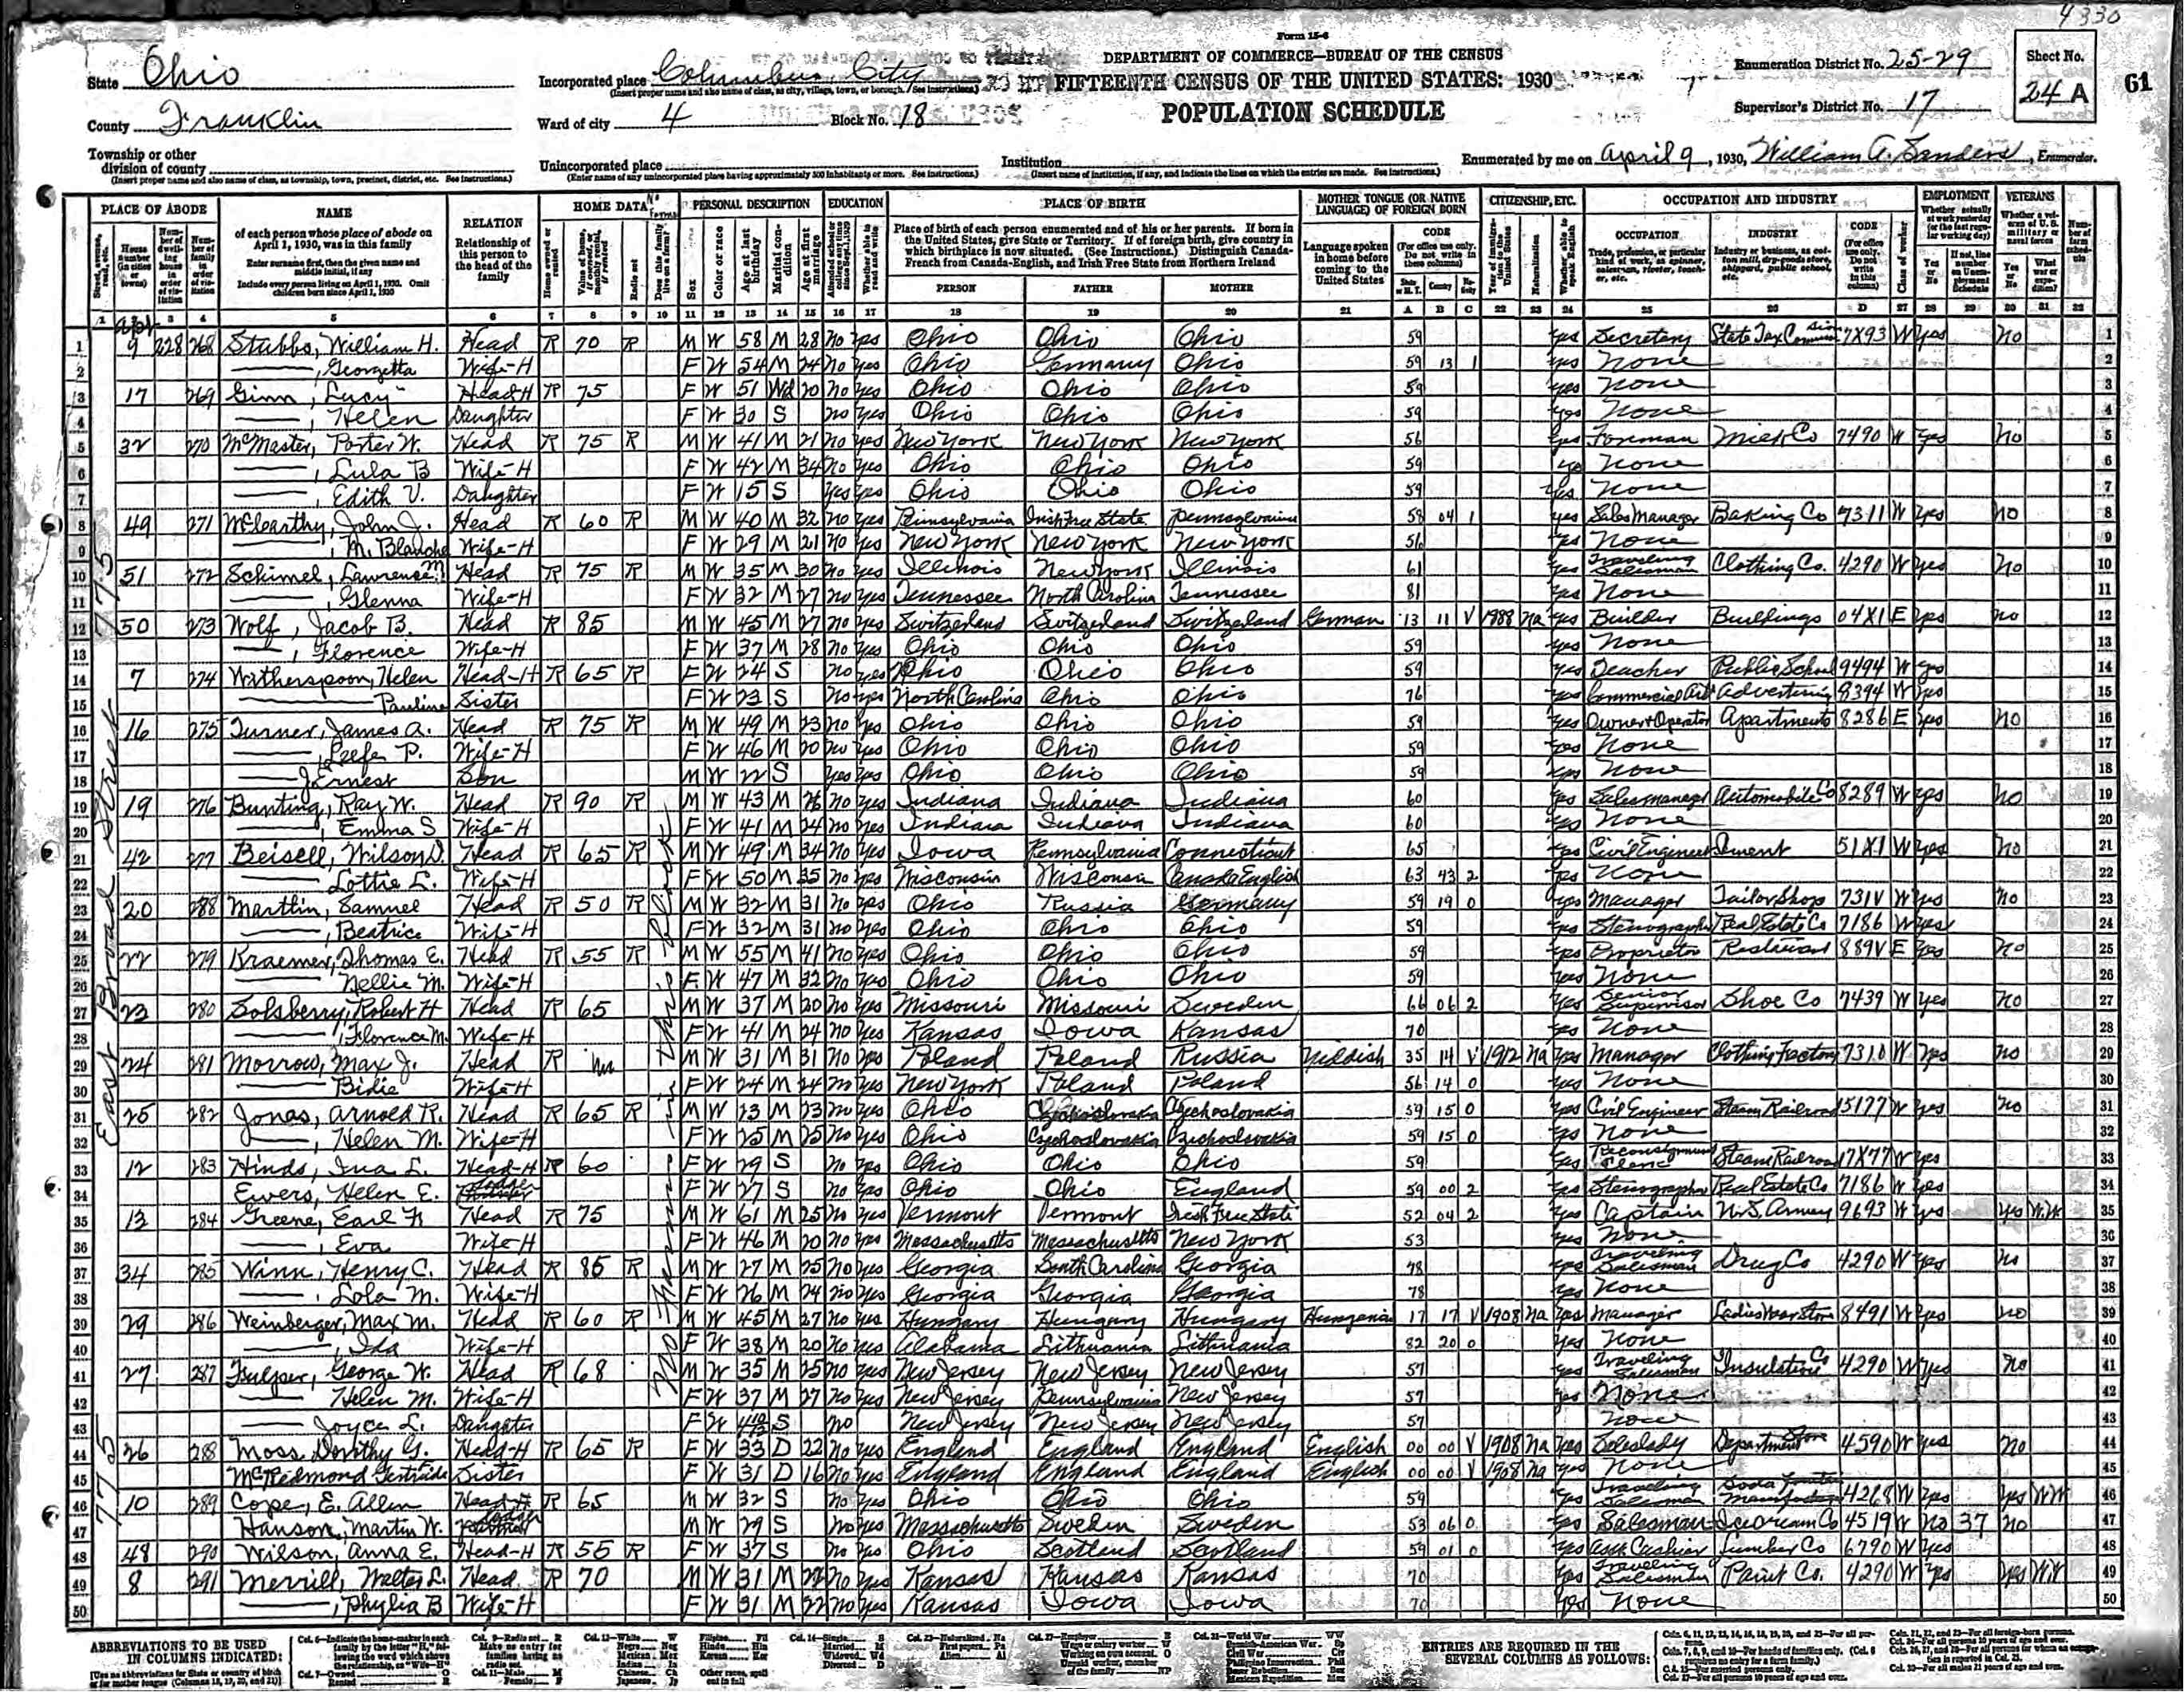 4330
Form 15-6
DEPARTMENT OF COMMERCE—BUREAU OF THE CENSUS
FIFTEENTH CENSUS OF THE UNITED STATES: 1930
POPULATION SCHEDULE
State Ohio
County Franklin
Township or other division of county
(Insert proper name and also name of class, as township, town, precinct, district, etc. See instructions.)
Incorporated place Columbus City
(Insert proper name and also name of class, as city, village, town, or borough. See instructions.)
Ward of city 4 Block No. 18
Unincorporated place
(Enter name of any unincorporated place having approximately 500 inhabitants or more. See instructions.)
Institution
(Insert name of institution, if any, and indicate the lines on which the entries are made. See instructions.)
Enumeration District No. 25-29
Supervisor's District No. 17
Sheet No. 24 A
61
Enumerated by me on April 9, 1930, William A. Sanders, Enumerator.
PLACE OF ABODE NAME RELATION HOME DATA PERSONAL DESCRIPTION EDUCATION PLACE OF BIRTH MOTHER TONGUE (OR NATIVE LANGUAGE) OF FOREIGN BORN CITIZENSHIP, ETC. OCCUPATION AND INDUSTRY EMPLOYMENT VETERANS
of each person whose place of abode on April 1, 1930, was in this family
Enter surname first, then the given name and middle initial, if any
Include every person living on April 1, 1930. Omit children born since April 1, 1930
Relationship of this person to the head of the family
Place of birth of each person enumerated and of his or her parents. If born in the United States, give State or Territory. If of foreign birth, give country in which birthplace is now situated. (See Instructions.) Distinguish Canada-French from Canada-English, and Irish Free State from Northern Ireland
PERSON FATHER MOTHER
Language spoken in home before coming to the United States
CODE OCCUPATION INDUSTRY CODE
East Broad Street
775
No farms in this block
1 9 228 268 Stubbs, William H. Head R 70 R M W 58 M 28 No Yes Ohio Ohio Ohio 59 Yes Secretary State Tax 7X93 W Yes No
2 , Georgetta Wife-H F W 54 M 24 No Yes Ohio Germany Ohio 59 13 1 Yes None
3 17 269 Ginn, Lucy Head-H R 75 F W 51 Wd 20 No Yes Ohio Ohio Ohio 59 Yes None
4 , Helen Daughter F W 30 S No Yes Ohio Ohio Ohio 59 Yes None
5 32 270 McMaster, Porter W. Head R 75 R M W 41 M 21 No Yes New York New York New York 56 Yes Foreman Co 7490 W Yes No
6 , Lula B Wife-H F W 42 M 34 No Yes Ohio Ohio Ohio 59 Yes None
7 , Edith V. Daughter F W 15 S Yes Yes Ohio Ohio Ohio 59 Yes None
8 49 271 McCarthy, John J. Head R 60 R M W 40 M 32 No Yes Pennsylvania Irish Free State Pennsylvania 58 04 1 Yes Sales Manager Baking Co 7311 W Yes No
9 , M. Blanche Wife-H F W 29 M 21 No Yes New York New York New York 56 Yes None
10 51 272 Schimel, Lawrence M Head R 75 R M W 35 M 30 No Yes Illinois New York Illinois 61 Yes Traveling Salesman Clothing Co. 4290 W Yes No
11 , Glenna Wife-H F W 32 M 27 No Yes Tennessee North Carolina Tennessee 81 Yes None
12 50 273 Wolf, Jacob B. Head R 85 M W 45 M 27 No Yes Switzerland Switzerland Switzerland German 13 11 V 1888 Na Yes Builder Buildings 04X1 E Yes No
13 , Florence Wife-H F W 37 M 28 No Yes Ohio Ohio Ohio 59 Yes None
14 7 274 Witherspoon, Helen Head-H R 65 R F W 24 S No Yes Ohio Ohio Ohio 59 Yes Teacher Public School 9494 W Yes
15 Pauline Sister F W 23 S No Yes North Carolina Ohio Ohio 76 Yes Commercial Art Advertising 8394 W Yes
16 16 275 Turner, James A. Head R 75 R M W 49 M 23 No Yes Ohio Ohio Ohio 59 Yes Owner & Operator Apartments 8286 E Yes No
17 P. Wife-H F W 46 M 20 No Yes Ohio Ohio Ohio 59 Yes None
18 J Ernest Son M W 22 S Yes Yes Ohio Ohio Ohio 59 Yes None
19 19 276 Bunting, Ray W. Head R 90 R M W 43 M 26 No Yes Indiana Indiana Indiana 60 Yes Sales manager Automobile Co 8289 W Yes No
20 , Emma S Wife-H F W 41 M 24 No Yes Indiana Indiana Indiana 60 Yes None
21 42 277 Beisell, Wilson D. Head R 65 R M W 49 M 34 No Yes Iowa Pennsylvania Connecticut 65 Yes Civil Engineer Cement 51X1 W Yes No
22 Lottie L. Wife-H F W 50 M 35 No Yes Wisconsin Wisconsin Canada English 63 43 2 Yes None
23 20 288 Martlin, Samuel Head R 50 R M W 32 M 31 No Yes Ohio Russia Germany 59 19 0 Yes Manager Tailor Shop 731V W Yes No
24 , Beatrice Wife-H F W 32 M 31 No Yes Ohio Ohio Ohio 59 Yes Stenographer Real Estate Co 7186 W Yes
25 22 279 Kraemer, Thomas E. Head R 55 R M W 55 M 41 No Yes Ohio Ohio Ohio 59 Yes Proprietor Restaurant 889V E Yes No
26 Nellie M. Wife-H F W 47 M 32 No Yes Ohio Ohio Ohio 59 Yes None
27 23 280 Solsberry, Robert H Head R 65 M W 37 M 20 No Yes Missouri Missouri Sweden 66 06 2 Yes Senior Supervisor Shoe Co 7439 W Yes No
28 , Florence M. Wife-H F W 41 M 24 No Yes Kansas Iowa Kansas 70 Yes None
29 24 281 Morrow, Max J. Head R M W 31 M 31 No Yes Poland Poland Russia Yiddish 35 14 V 1912 Na Yes Manager Clothing Factory 7310 W Yes No
30 Birdie Wife-H F W 24 M 24 No Yes New York Poland Poland 56 14 0 Yes None
31 25 282 Jonas, Arnold R. Head R 65 R M W 23 M 23 No Yes Ohio Czechoslovakia Czechoslovakia 59 15 0 Yes Civil Engineer Steam Railroad 5177 W Yes No
32 , Helen M. Wife-H F W 25 M 25 No Yes Ohio Czechoslovakia Czechoslovakia 59 15 0 Yes None
33 12 283 Hinds, Ina L. Head-H R 60 F W 29 S No Yes Ohio Ohio Ohio 59 Yes Reconsignment Clerk Steam Railroad 7X77 W Yes
34 Ewers, Helen E. Lodger F W 27 S No Yes Ohio Ohio England 59 00 2 Yes Stenographer Real Estate Co 7186 W Yes
35 13 284 Greene, Earl W Head R 75 M W 61 M 25 No Yes Vermont Vermont Irish Free State 52 04 2 Yes Captain U.S. Army 9693 W Yes Yes W.W
36 , Eva Wife-H F W 46 M 20 No Yes Massachusetts Massachusetts New York 53 Yes None
37 34 285 Winn, Henry C. Head R 85 R M W 27 M 25 No Yes Georgia South Carolina Georgia 78 Yes Traveling Salesman Drug Co 4290 W Yes No
38 , Lola M. Wife-H F W 26 M 24 No Yes Georgia Georgia Georgia 78 Yes None
39 29 286 Weinberger, Max M. Head R 60 R M W 45 M 27 No Yes Hungary Hungary Hungary Hungarian 17 17 V 1908 Na Yes Manager Ladies Wear Store 8491 W Yes No
40 , Ida Wife-H F W 38 M 20 No Yes Alabama Lithuania Lithuania 82 20 0 Yes None
41 27 287 Fulper, George W. Head R 68 M W 35 M 25 No Yes New Jersey New Jersey New Jersey 57 Yes Traveling Salesman Insulation Co 4290 W Yes No
42 Helen M. Wife-H F W 37 M 27 No Yes New Jersey Pennsylvania New Jersey 57 Yes None
43 Joyce L. Daughter F W S No New Jersey New Jersey New Jersey 57 None
44 26 288 Moss, Dorothy G. Head-H R 65 R F W 33 D 22 No Yes England England England English 00 00 V 1908 Na Yes Saleslady Department Store 4590 W Yes No
45 McRedmond Gertrude Sister F W 31 D 16 No Yes England England England English 00 00 V 1908 Na Yes None
46 10 289 Cope, E. Allen Head R 65 M W 32 S No Yes Ohio Ohio Ohio 59 Yes Traveling Salesman Soda Fountain 4268 W Yes Yes WW
47 Hanson, Martin W. Lodger M W 29 S No Yes Massachusetts Sweden Sweden 53 06 0 Yes Salesman Ice Cream Co 4519 W No 37 No
48 48 290 Wilson, Anna E. Head-H R 55 R F W 37 S No Yes Ohio Scotland Scotland 59 01 0 Yes Asst Cashier Lumber Co 6790 W Yes
49 8 291 Merrill, Walter L. Head R 70 M W 31 M 22 No Yes Kansas Kansas Kansas 70 Yes Traveling Salesman Paint Co. 4290 W Yes Yes WW
50 , Phylia B Wife-H F W 31 M 22 No Yes Kansas Iowa Iowa 70 Yes None
ABBREVIATIONS TO BE USED IN COLUMNS INDICATED:
ENTRIES ARE REQUIRED IN THE SEVERAL COLUMNS AS FOLLOWS: